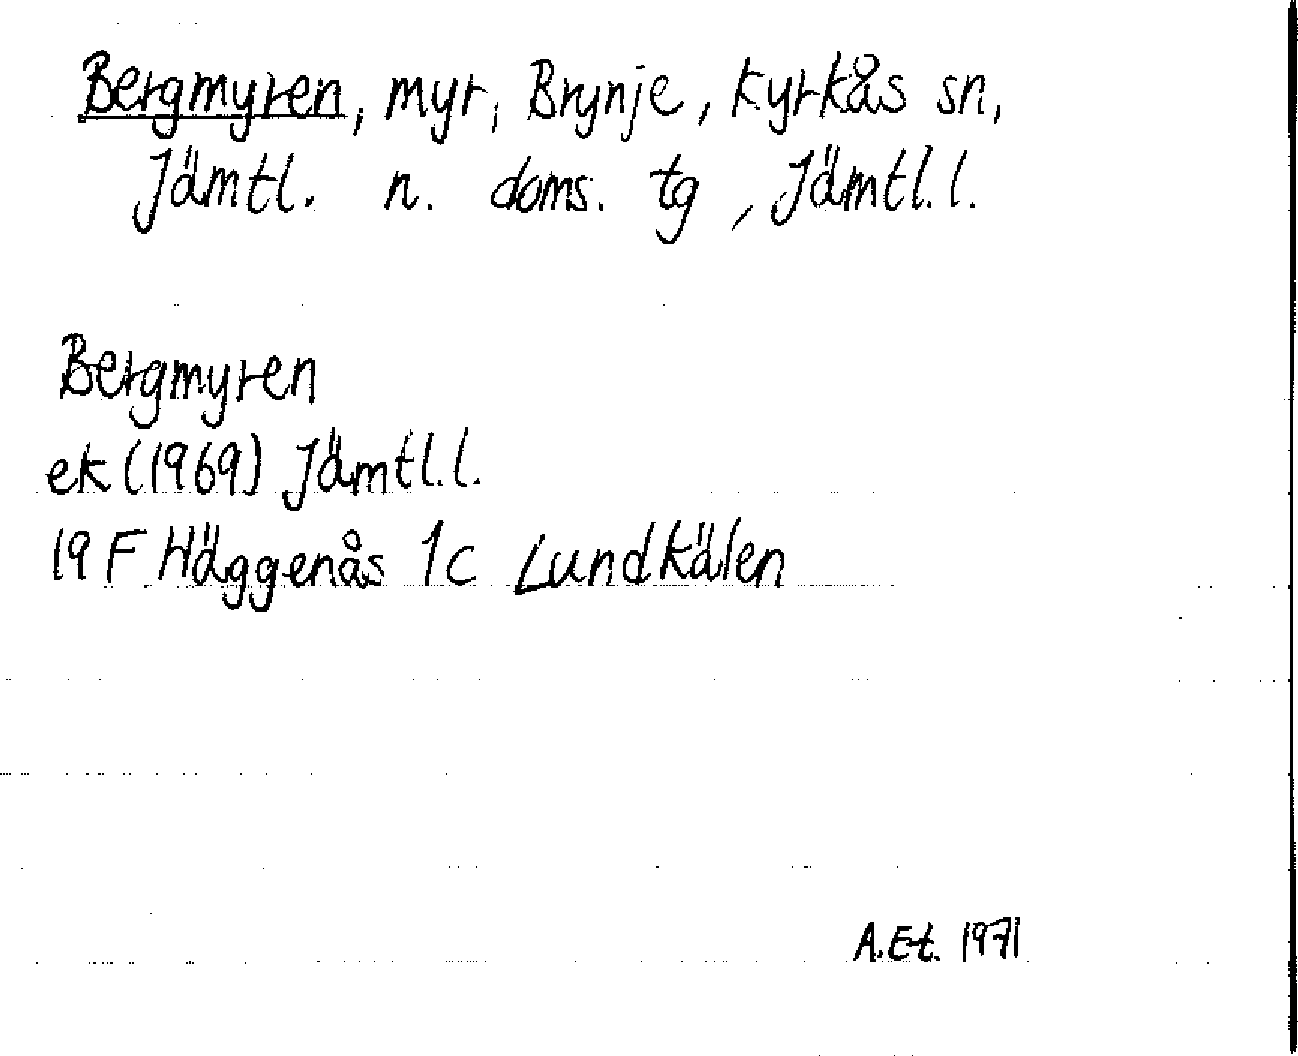 Bergmyren, myr, Brynje, Kyrkås sn,
Jämtl. n. doms. tg, Jämtl. l.
Bergmyren
ek (1969) Jämtl. l.
19 F Häggenås 1c Lundkälen
A.Et. 1971